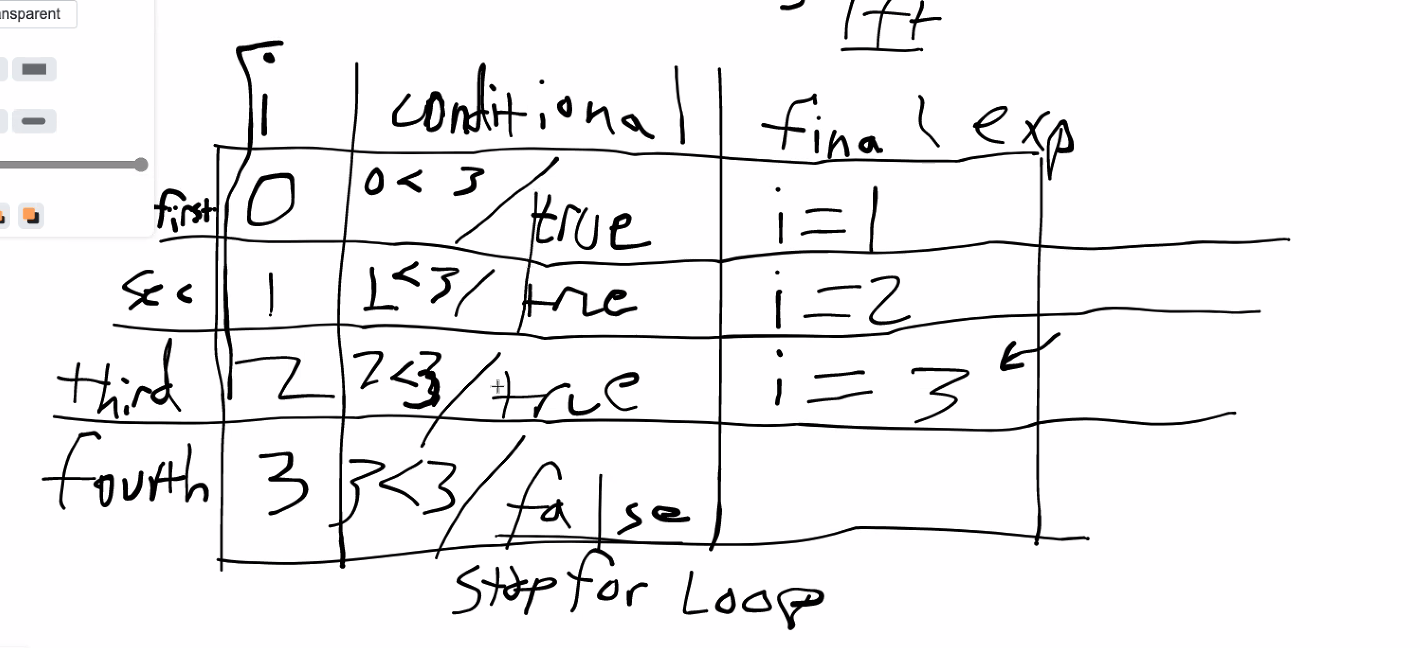 nsparent
i conditional final exp
first 0 0 < 3 / true i = 1
sec 1 1 < 3 / true i = 2
third 2 2 < 3 / true i = 3
fourth 3 3 < 3 / false
Stop for Loop